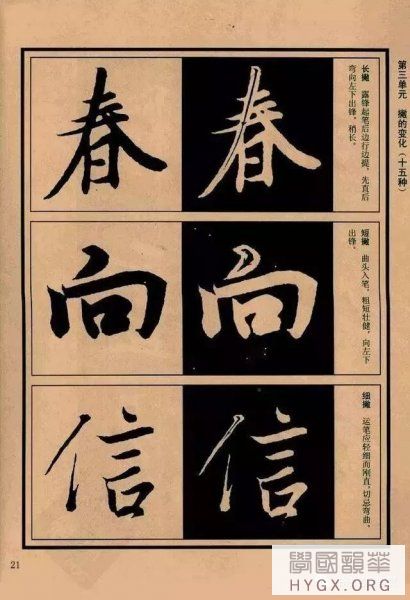 第三单元　撇的变化（十五种）
长撇　露锋起笔后边行边提，先直后
弯向左下出锋，稍长。
春 春
短撇　曲头入笔，粗短壮健，向左下
出锋。
向 向
细撇　运笔应轻细而刚直，切忌弯曲。
信 信
21
學國韻華
HYGX.ORG